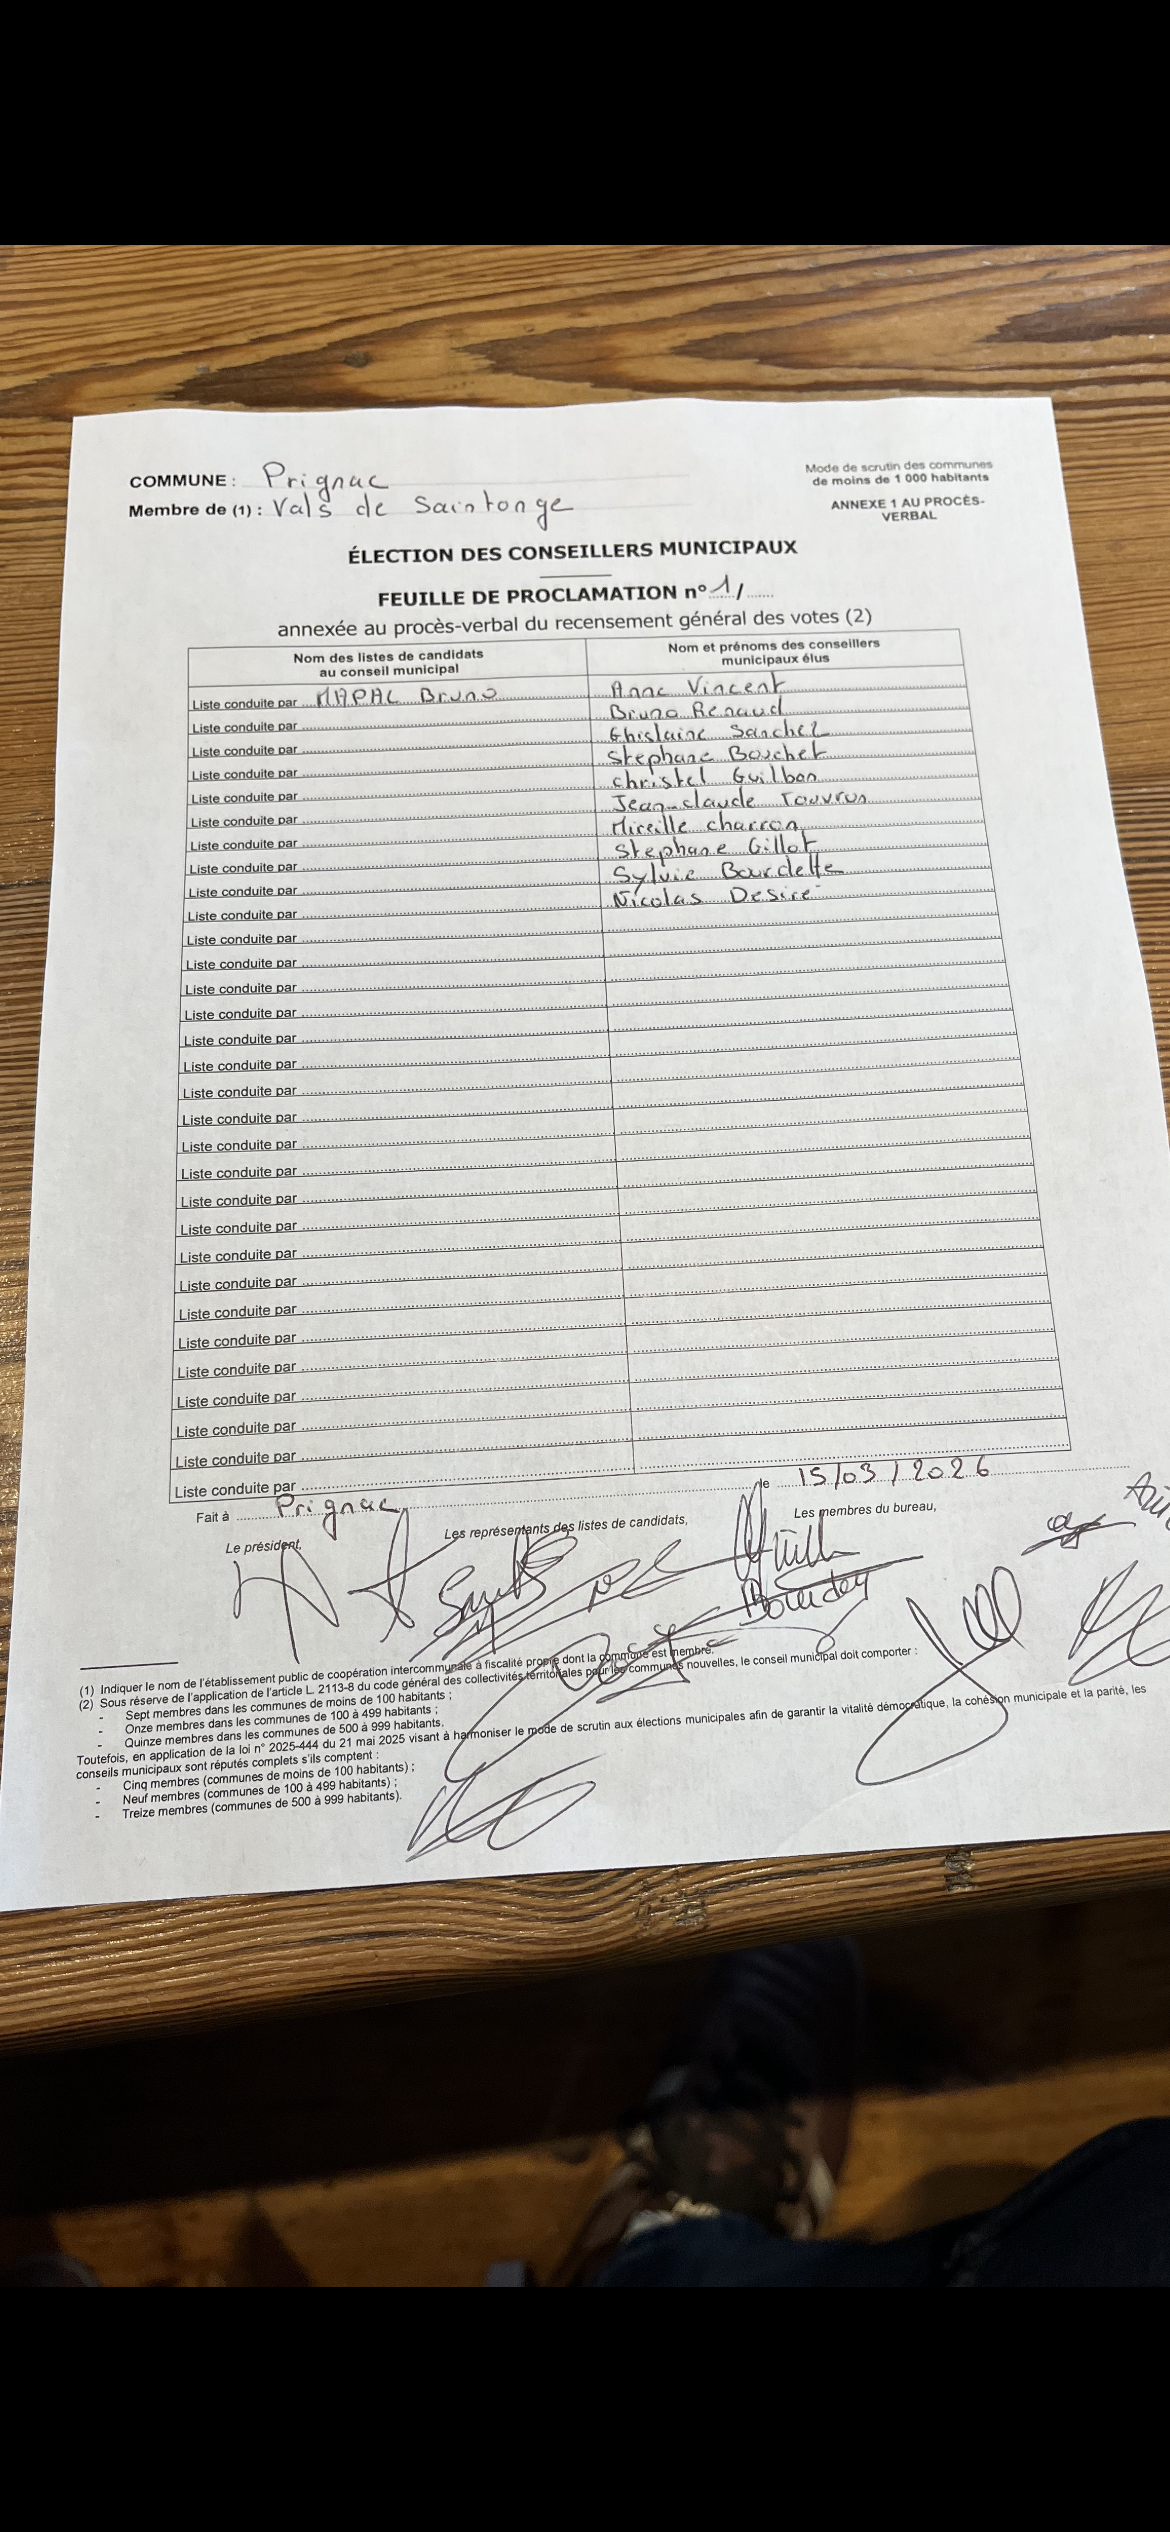 COMMUNE : Prignac
Membre de (1) : Vals de Saintonge
Mode de scrutin des communes
de moins de 1 000 habitants
ANNEXE 1 AU PROCÈS-
VERBAL
ÉLECTION DES CONSEILLERS MUNICIPAUX
FEUILLE DE PROCLAMATION n° 1/......
annexée au procès-verbal du recensement général des votes (2)
Nom des listes de candidats
au conseil municipal
Nom et prénoms des conseillers
municipaux élus
Liste conduite par MAPAC Bruno
Anne Vincent
Liste conduite par
Bruno Renaud
Liste conduite par
Ghislaine Sanchez
Liste conduite par
Stephane Bouchet
Liste conduite par
Christel Guilbon
Liste conduite par
Jean-claude Touvron
Liste conduite par
Mireille charron
Liste conduite par
Stephane Gillot
Liste conduite par
Sylvie Bourdelle
Liste conduite par
Nicolas Desire
Liste conduite par
Liste conduite par
Liste conduite par
Liste conduite par
Liste conduite par
Liste conduite par
Liste conduite par
Liste conduite par
Liste conduite par
Liste conduite par
Liste conduite par
Liste conduite par
Liste conduite par
Liste conduite par
Liste conduite par
Liste conduite par
Liste conduite par
Liste conduite par
Liste conduite par
Liste conduite par
Liste conduite par
Fait à Prignac, le 15/03/2026
Le président,
Les représentants des listes de candidats,
Les membres du bureau,
(1) Indiquer le nom de l'établissement public de coopération intercommunale à fiscalité propre dont la commune est membre.
(2) Sous réserve de l'application de l'article L. 2113-8 du code général des collectivités territoriales pour les communes nouvelles, le conseil municipal doit comporter :
- Sept membres dans les communes de moins de 100 habitants ;
- Onze membres dans les communes de 100 à 499 habitants ;
- Quinze membres dans les communes de 500 à 999 habitants.
Toutefois, en application de la loi n° 2025-444 du 21 mai 2025 visant à harmoniser le mode de scrutin aux élections municipales afin de garantir la vitalité démocratique, la cohésion municipale et la parité, les
conseils municipaux sont réputés complets s'ils comptent :
- Cinq membres (communes de moins de 100 habitants) ;
- Neuf membres (communes de 100 à 499 habitants) ;
- Treize membres (communes de 500 à 999 habitants).